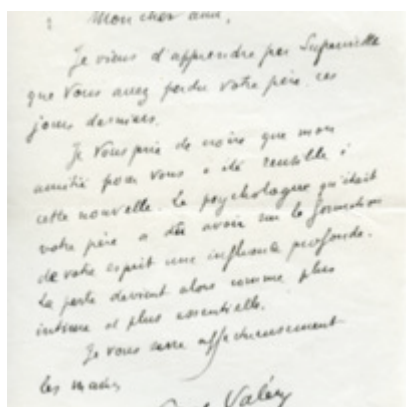 Mon cher ami,
Je viens d'apprendre par Supervielle
que vous avez perdu votre père, ces
jours derniers.
Je vous prie de croire que mon
amitié pour vous a été sensible à
cette nouvelle. Le psychologue qu'était
votre père a dû avoir sur la formation
de votre esprit une influence profonde.
La perte devient alors comme plus
intime et plus essentielle.
Je vous serre affectueusement
les mains
Valéry